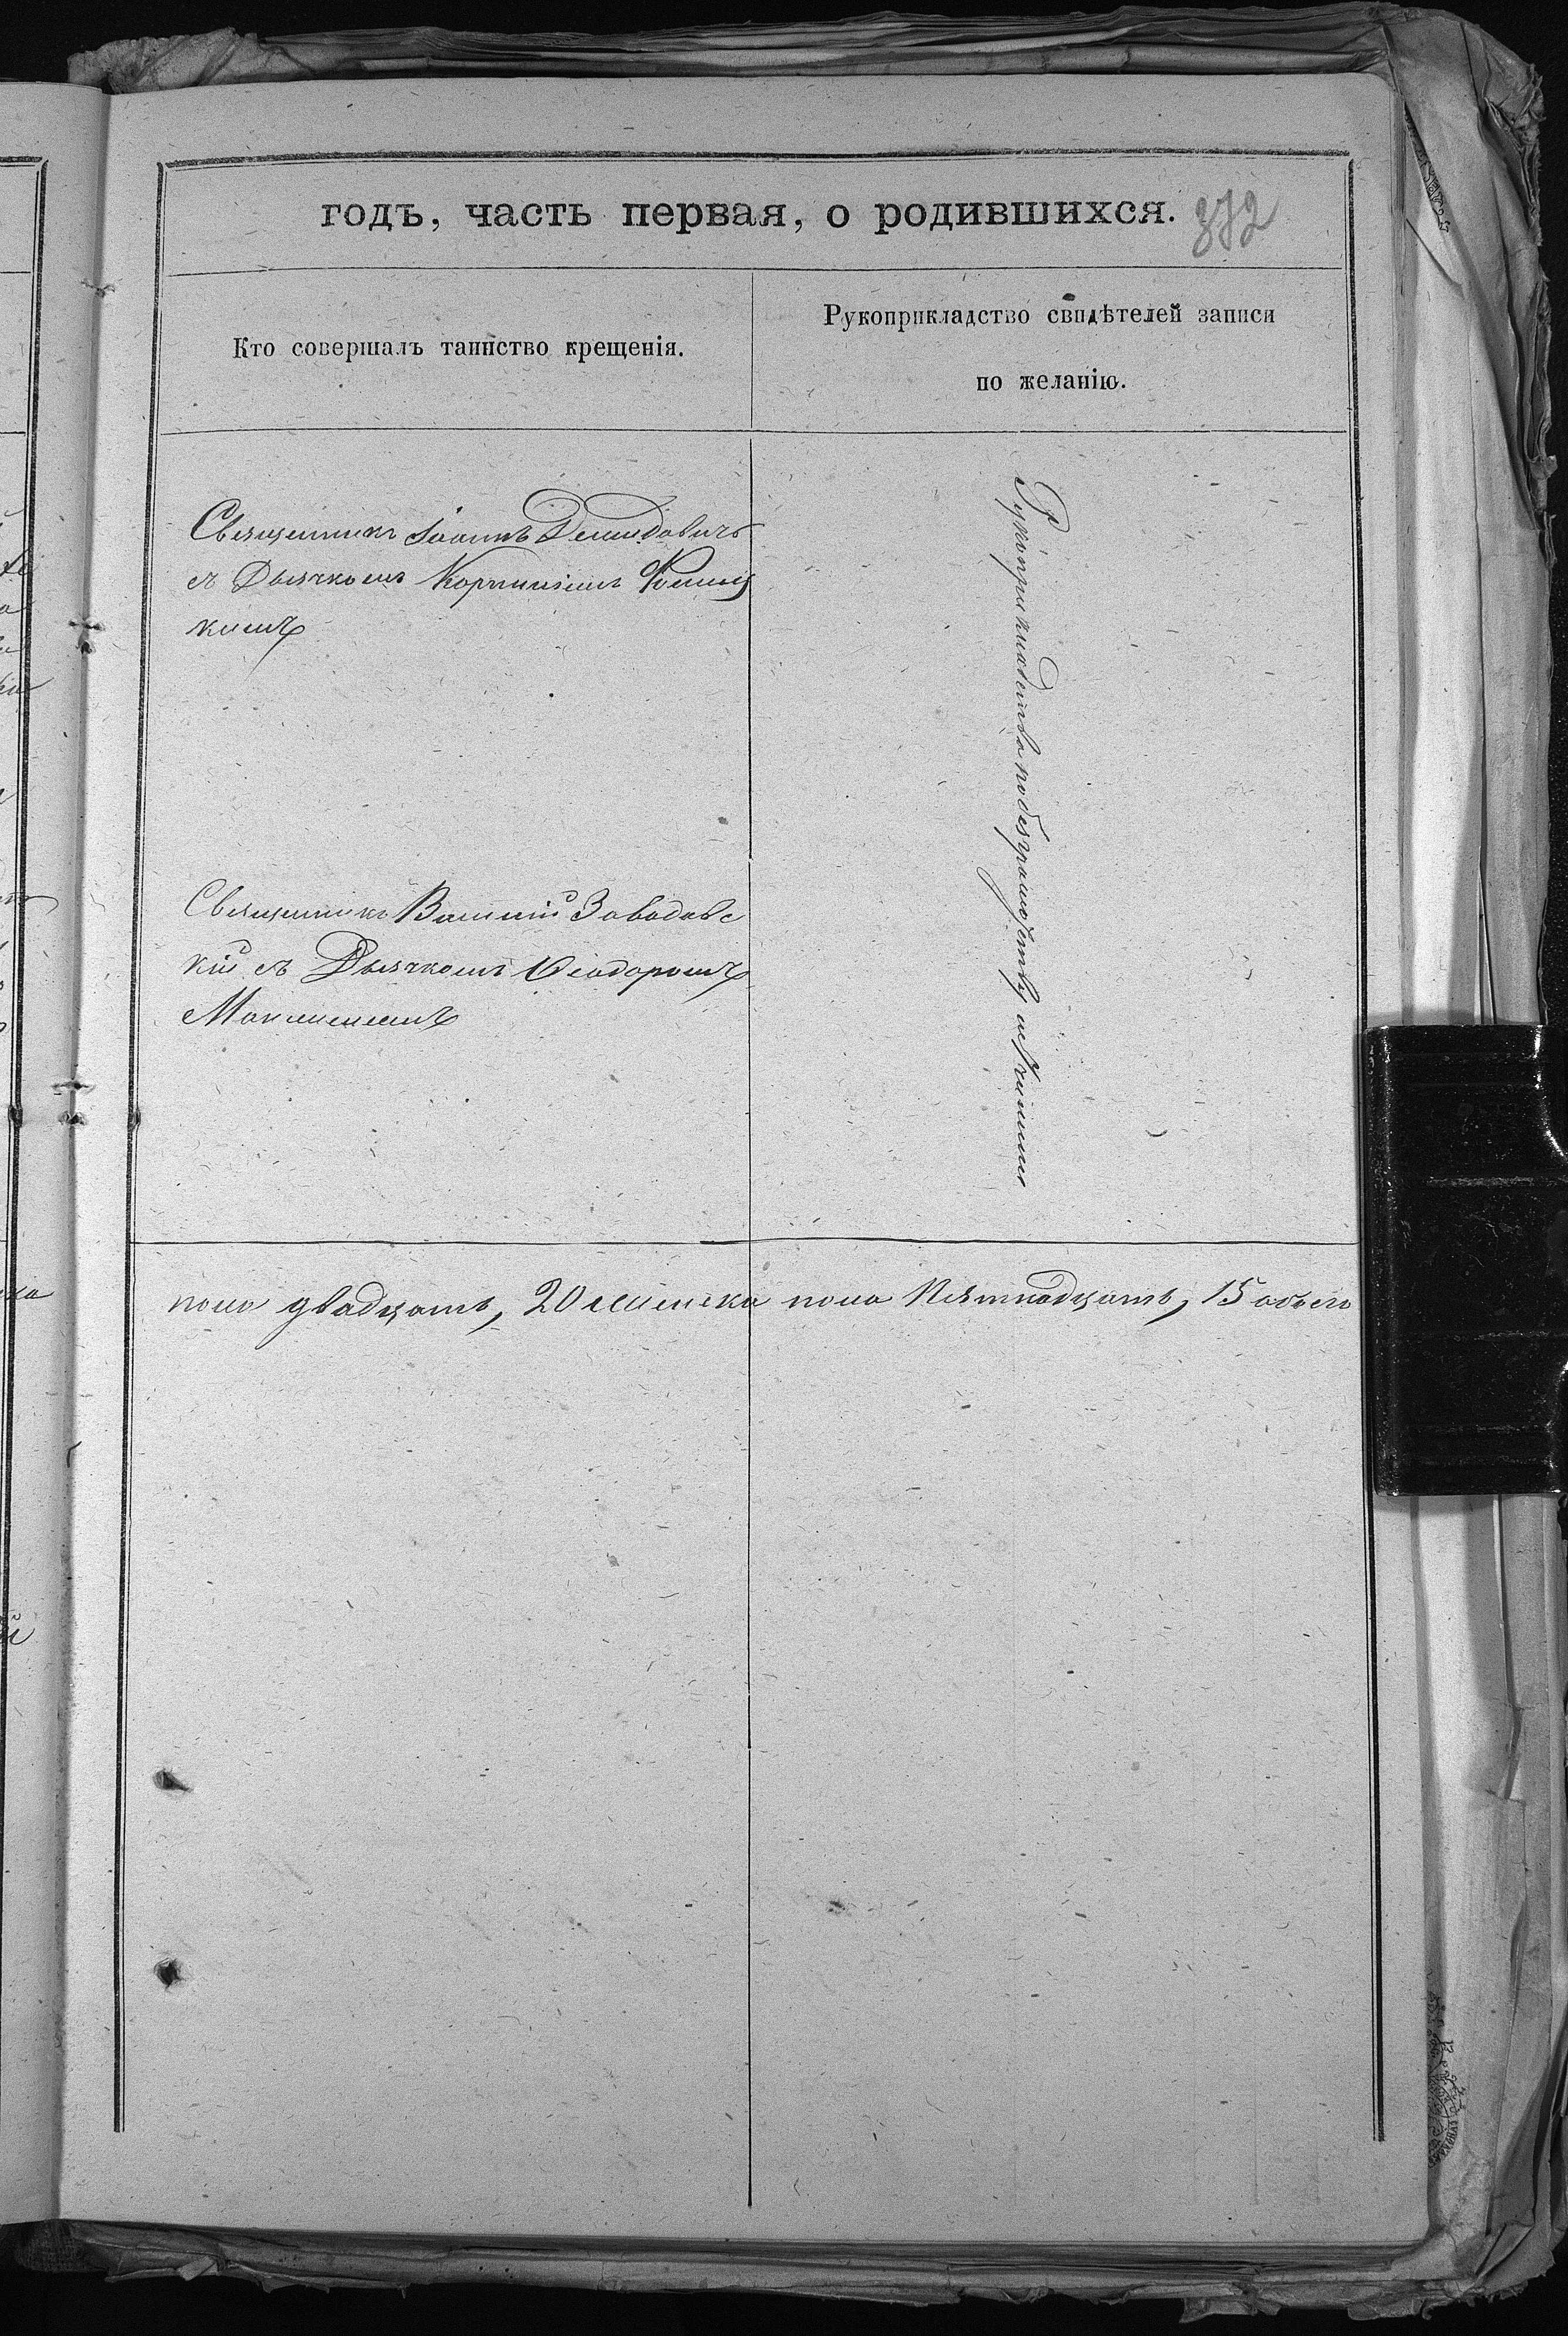 годъ, часть первая, о родившихся. 372
Кто совершалъ таинство крещенія.
Рукоприкладство свидѣтелей записи
по желанію.
Священникъ Іоаннъ Демидовичъ
съ Дьячкомъ Корниліемъ
кимъ
Священникъ Василій Заводовс
кій съ Дьячкомъ Ѳеодоромъ
Рукоприкладство по безграмотству
пола двадцать, 20 женска пола Пятнадцать, 15 обоего